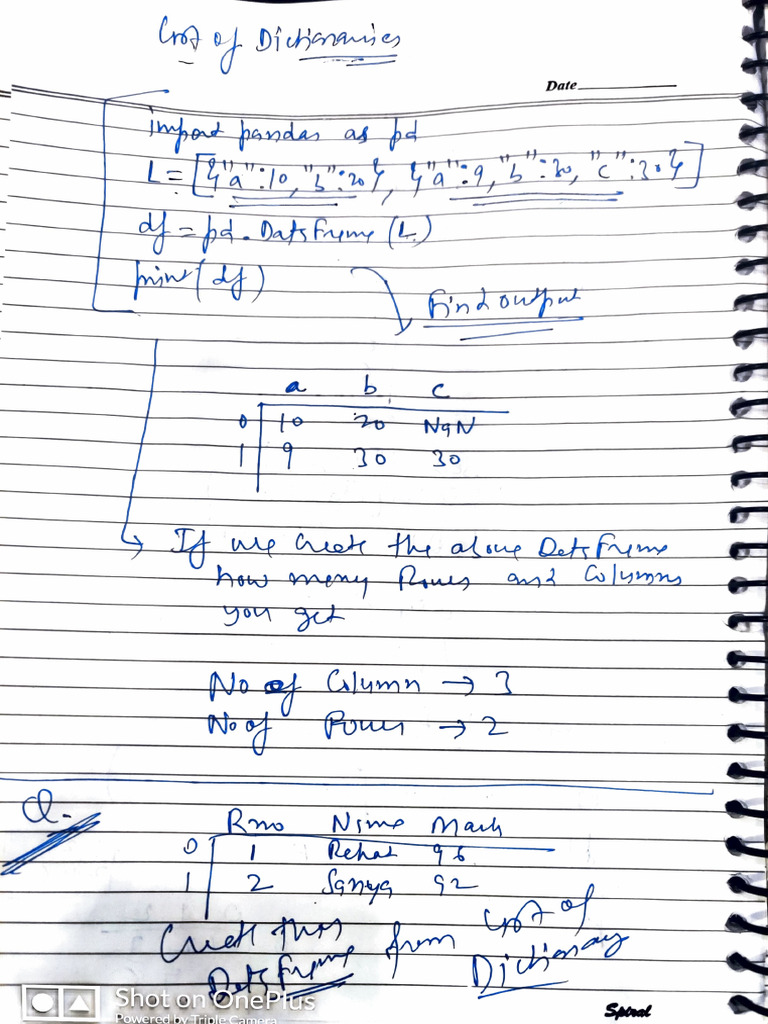 List of Dictionaries
Date
import pandas as pd
L = [{"a":10, "b":20}, {"a":9, "b":30, "c":30}]
df = pd.DataFrame(L)
print(df)
Find output
a b c
0 10 20 NaN
1 9 30 30
If we create the above DataFrame
how many Rows and Columns
you get
No of Column → 3
No of Rows → 2
Q.
Rno Name Mark
0 1 Rehat 96
1 2 Sanya 92
Create this DataFrame from List of Dictionary
Shot on OnePlus
Powered by Triple Camera
Spiral